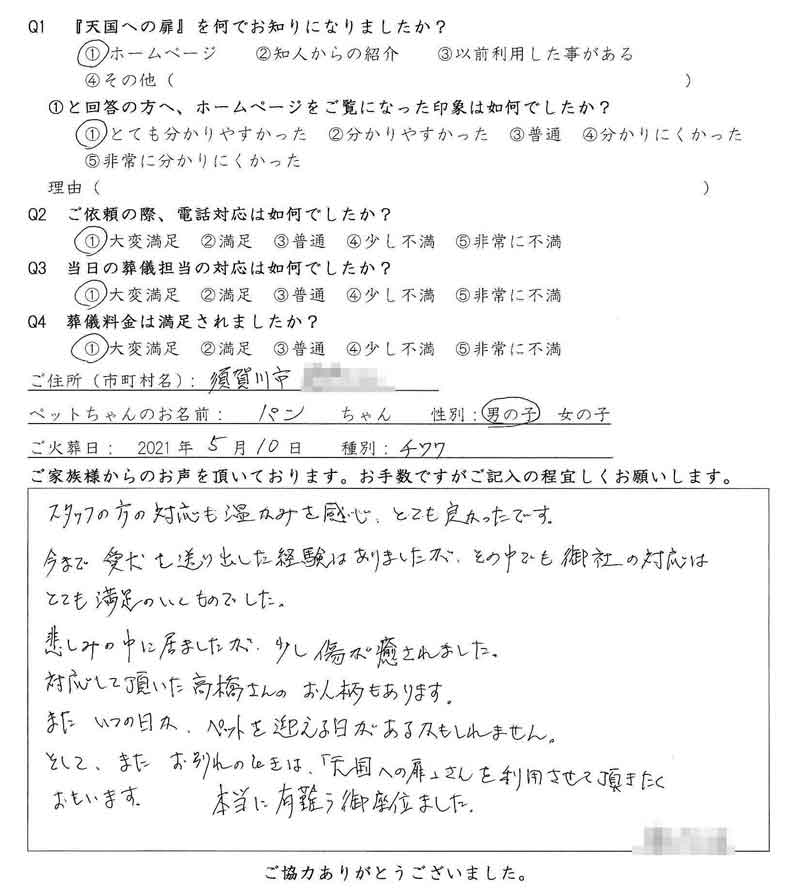 Q1 『天国への扉』を何でお知りになりましたか？
①ホームページ ②知人からの紹介 ③以前利用した事がある
④その他（ ）
①と回答の方へ、ホームページをご覧になった印象は如何でしたか？
①とても分かりやすかった ②分かりやすかった ③普通 ④分かりにくかった
⑤非常に分かりにくかった
理由（ ）
Q2 ご依頼の際、電話対応は如何でしたか？
①大変満足 ②満足 ③普通 ④少し不満 ⑤非常に不満
Q3 当日の葬儀担当の対応は如何でしたか？
①大変満足 ②満足 ③普通 ④少し不満 ⑤非常に不満
Q4 葬儀料金は満足されましたか？
①大変満足 ②満足 ③普通 ④少し不満 ⑤非常に不満
ご住所（市町村名）：須賀川市
ペットちゃんのお名前： パン ちゃん 性別：男の子 女の子
ご火葬日： 2021年 5月 10日 種別：チワワ
ご家族様からのお声を頂いております。お手数ですがご記入の程宜しくお願いします。
スタッフの方の対応も温かみを感じ、とても良かったです。
今まで愛犬を送り出した経験はありましたが、その中でも御社の対応は
とても満足のいくものでした。
悲しみの中に居ましたが、少し傷が癒されました。
対応して頂いた高橋さんのお人柄もあります。
また いつの日か、ペットを迎える日があるかもしれません。
そして、また お別れのときは、「天国への扉」さんを利用させて頂きたく
おもいます。 本当に有難う御座位ました。
ご協力ありがとうございました。